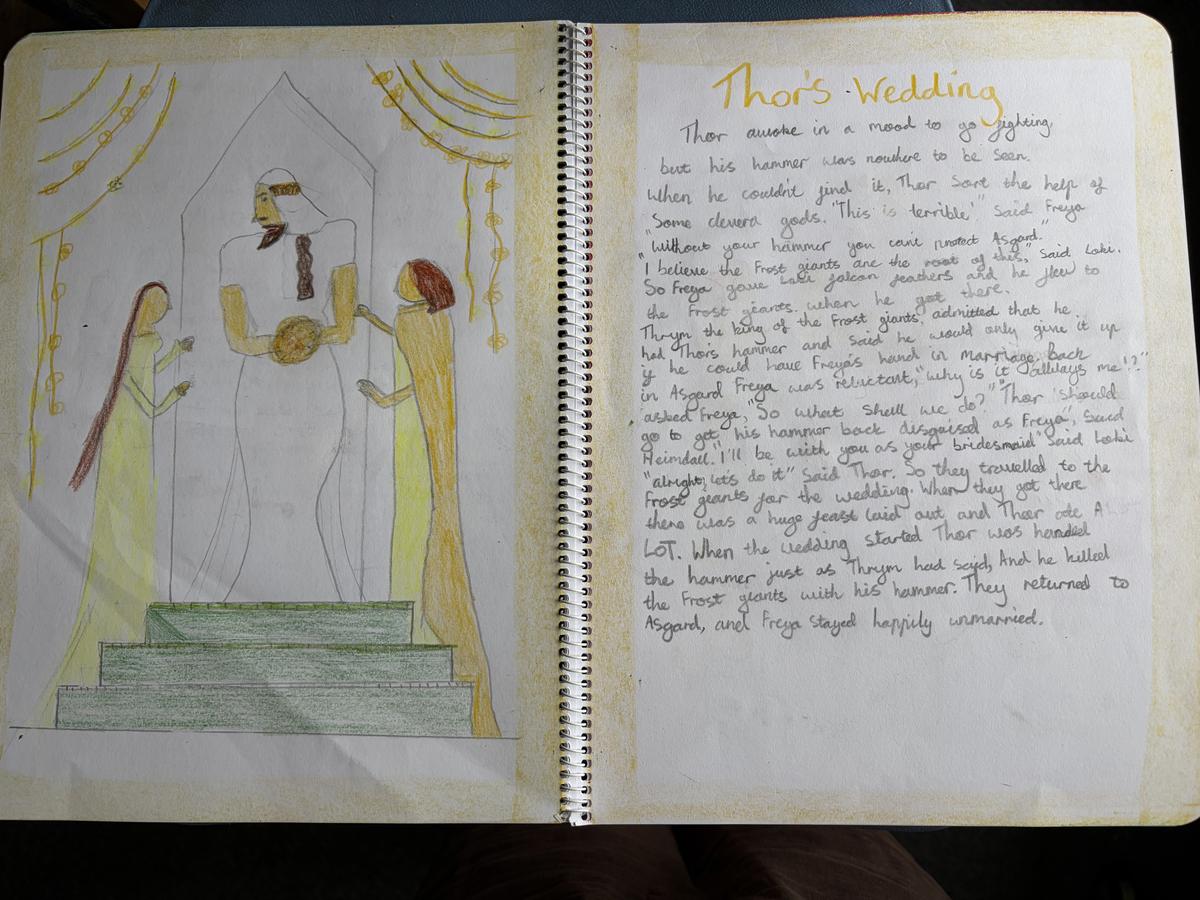 Thor's Wedding
Thor awoke in a mood to go fighting,
but his hammer was nowhere to be seen.
When he couldn't find it, Thor Sort the help of
Some clevera gods. "This is terrible" Said Freya
"Without your hammer you can't protect Asgard."
"I believe the Frost giants are the root of this," Said Loki.
So Freya gave Loki falcon feathers and he flew to
the Frost giants. when he got there.
Thrym the king of the Frost giants, admitted that he
had Thor's hammer and said he would only give it up
if he could have Freya's hand in marriage. Back
in Asgard Freya was reluctant, "why is it allways me!?"
asked Freya, "So what shall we do?" "Thor should
go to get his hammer back disgaised as Freya", Said
Heimdall. "I'll be with you as your bridesmaid" Said Loki
"alright, let's do it" Said Thor. So they travelled to the
Frost giants for the wedding. When they got there
there was a huge feast laid out and Thor ate A
LOT. When the wedding started Thor was handed
the hammer just as Thrym had said, And he killed
the Frost giants with his hammer. They returned to
Asgard, and Freya stayed happily unmarried.